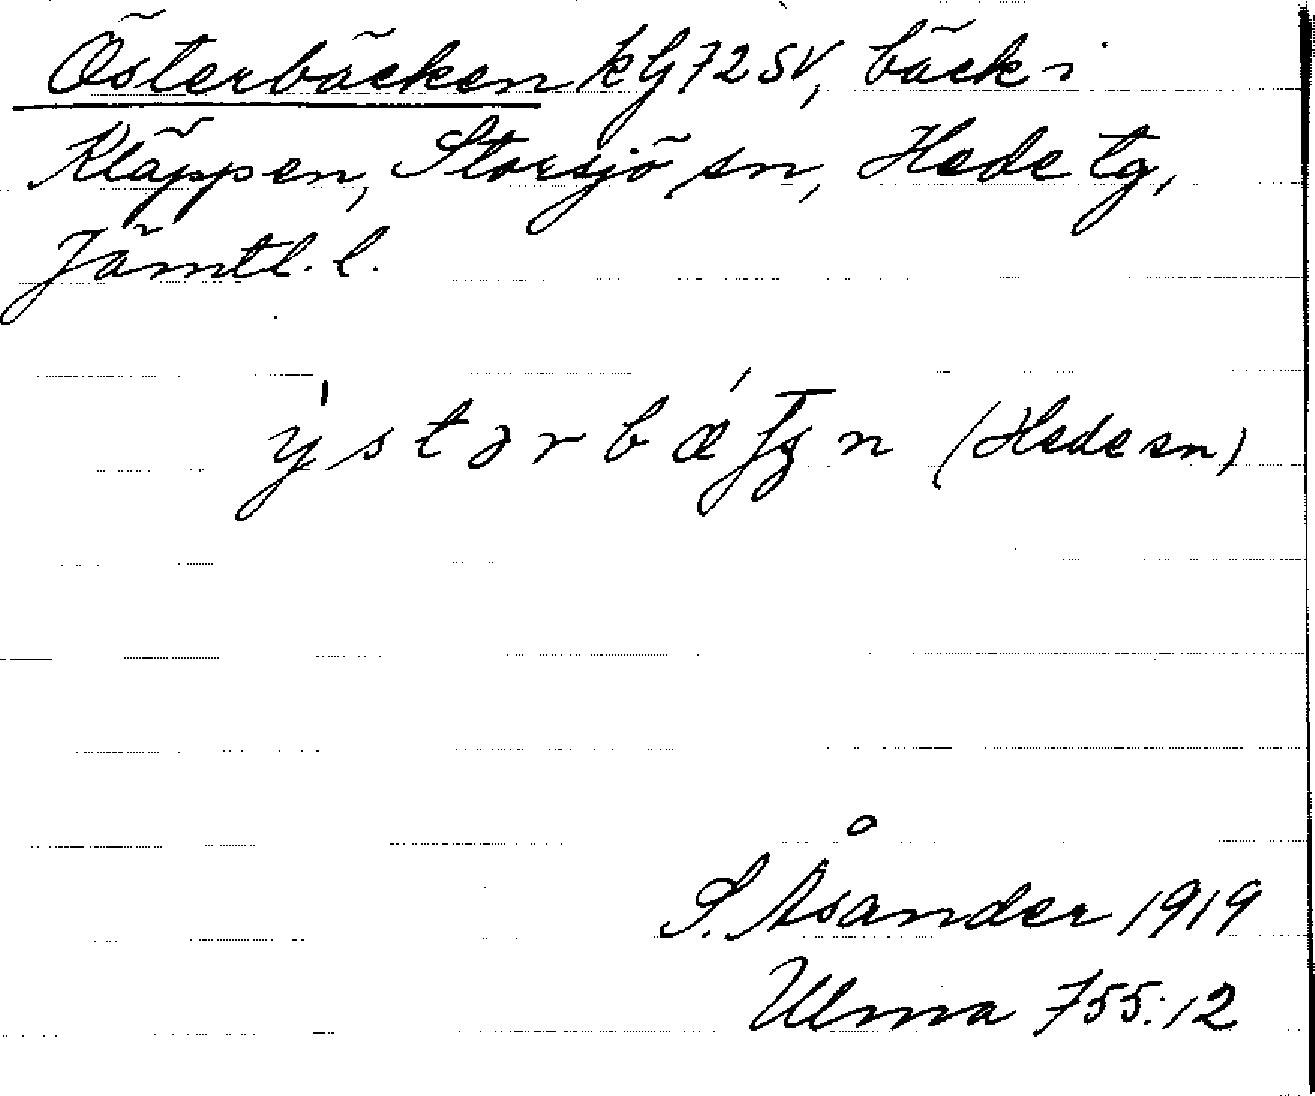 Österbäcken kG 72 SV, bäck i
Kläppen, Storsjö sn, Hede tg,
Jämtl. l.
(Hede sn)
S. Åsander 1919
Ulma 755:12